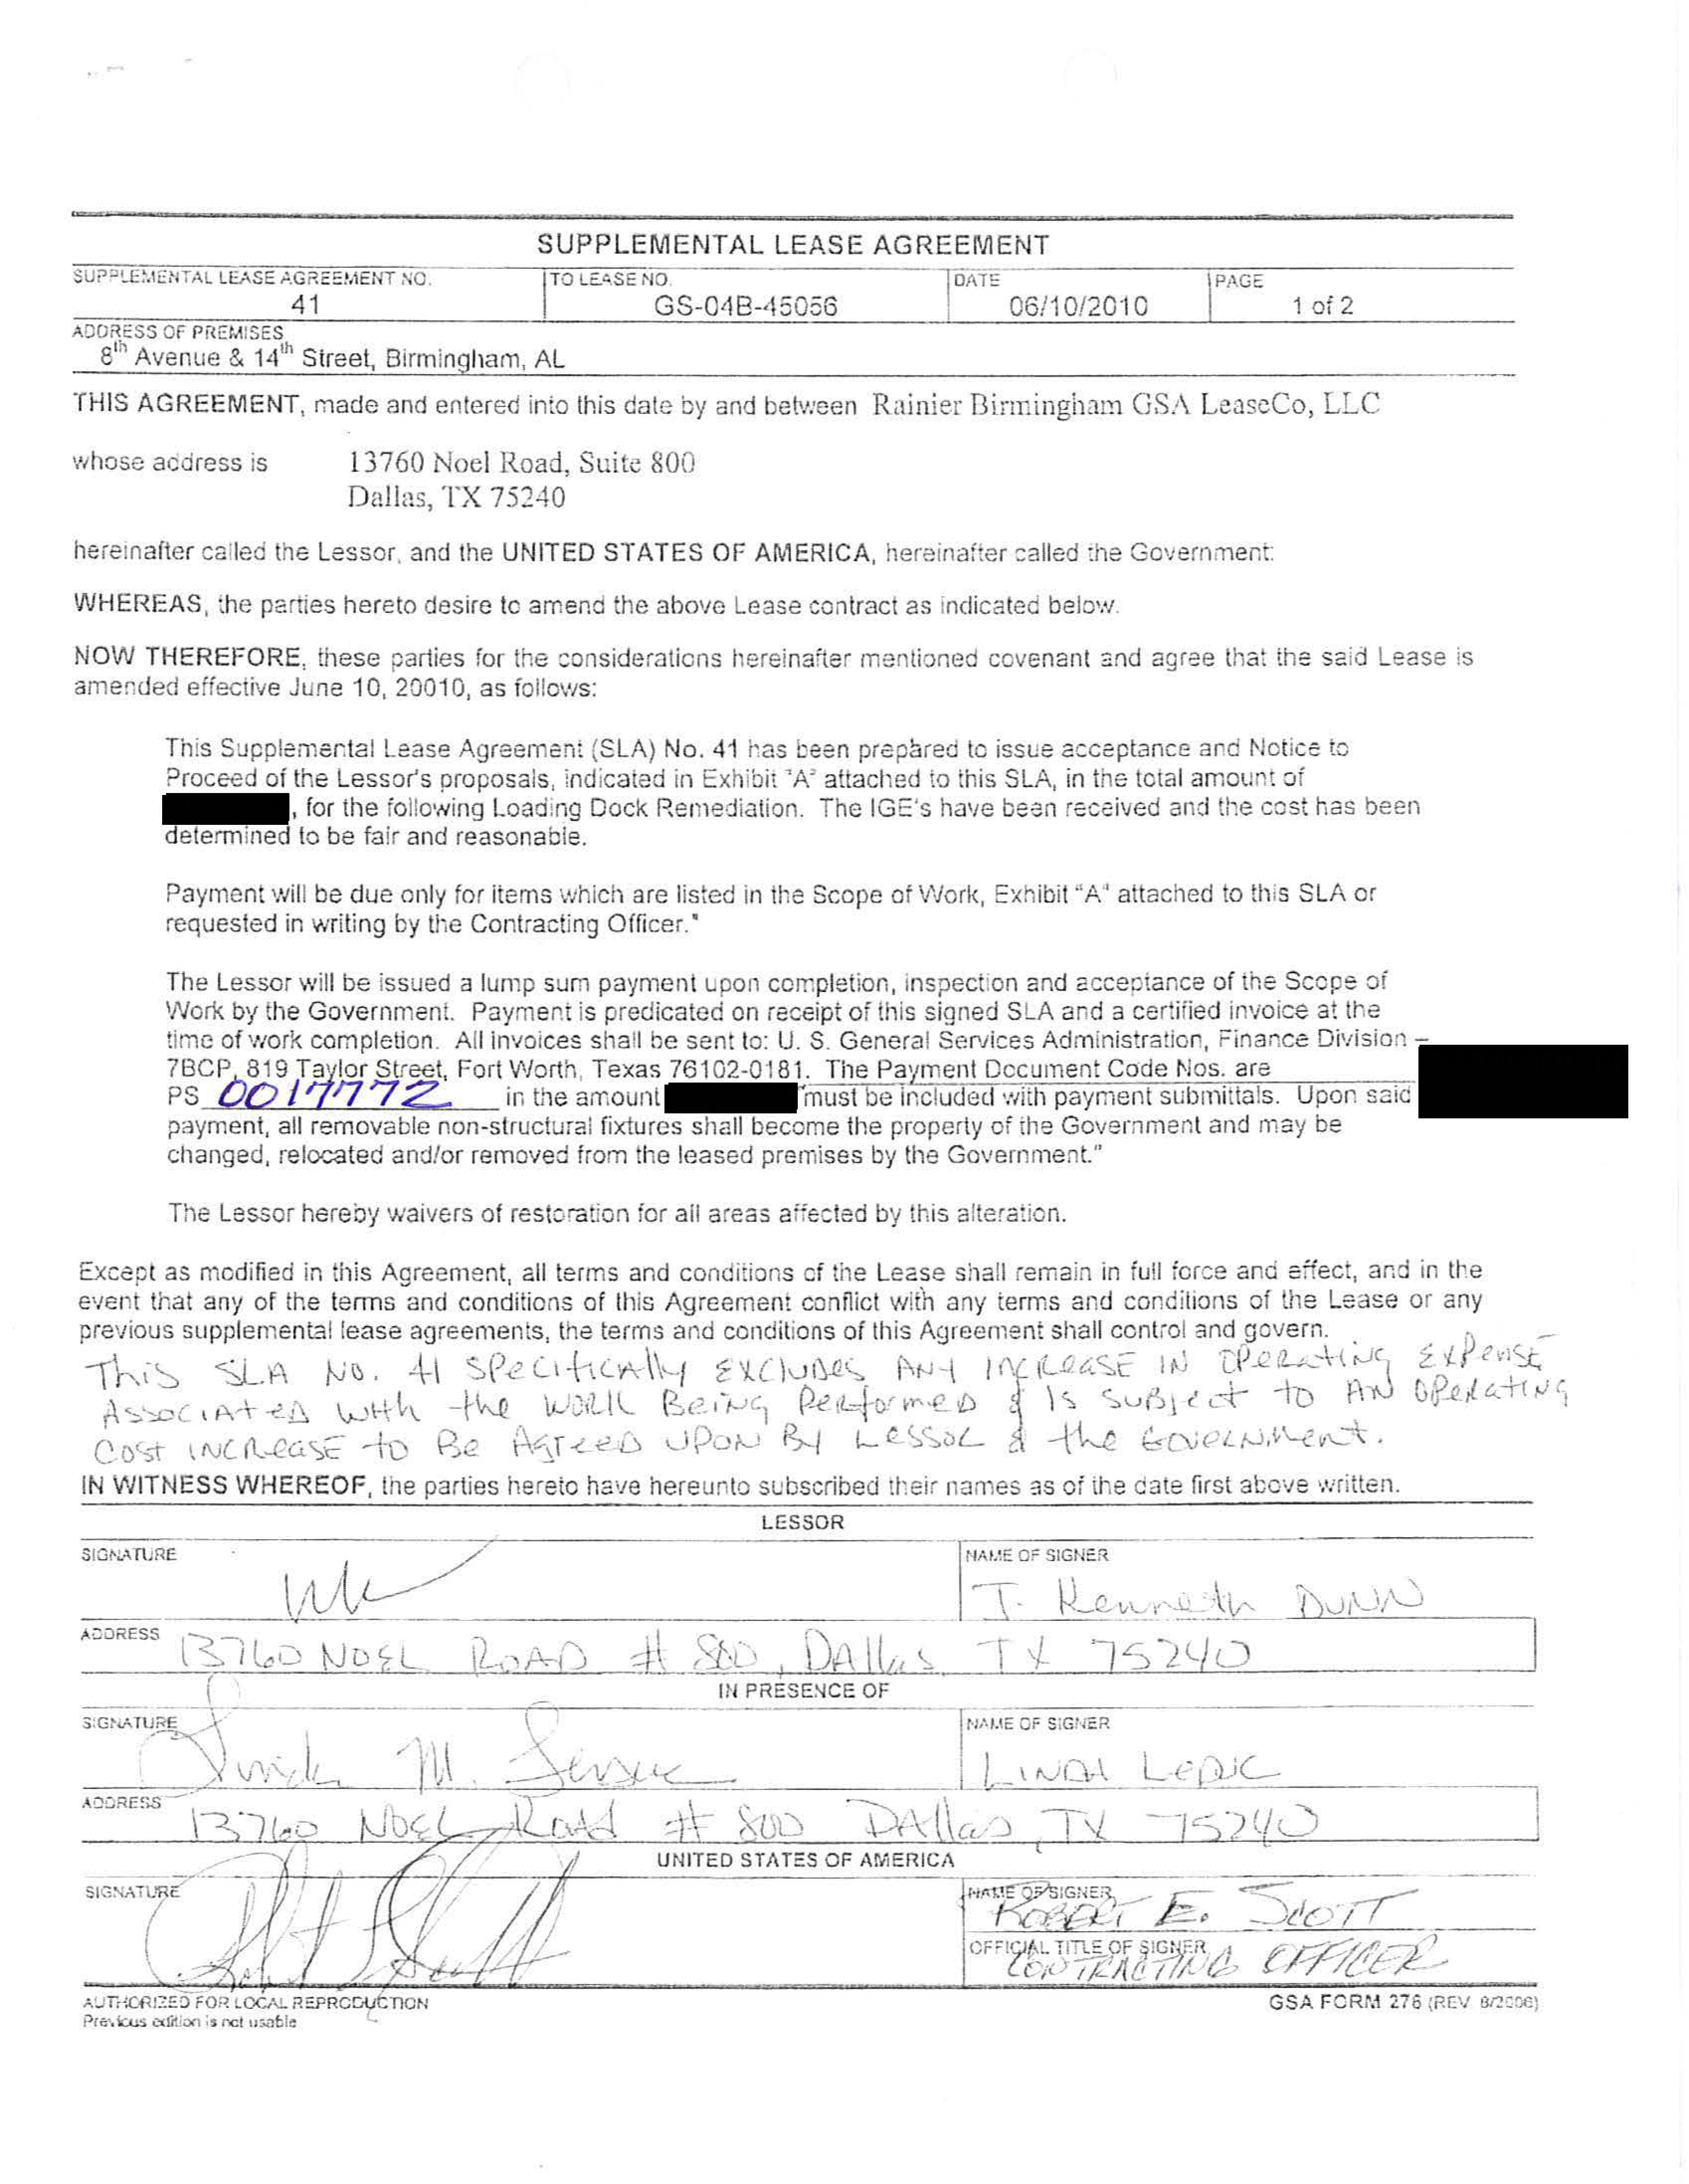 SUPPLEMENTAL LEASE AGREEMENT
SUPPLEMENTAL LEASE AGREEMENT NO. TO LEASE NO. DATE PAGE
41 GS-04B-45056 06/10/2010 1 of 2
ADDRESS OF PREMISES
8th Avenue & 14th Street, Birmingham, AL
THIS AGREEMENT, made and entered into this date by and between Rainier Birmingham GSA LeaseCo, LLC
whose address is 13760 Noel Road, Suite 800
Dallas, TX 75240
hereinafter called the Lessor, and the UNITED STATES OF AMERICA, hereinafter called the Government:
WHEREAS, the parties hereto desire to amend the above Lease contract as indicated below.
NOW THEREFORE, these parties for the considerations hereinafter mentioned covenant and agree that the said Lease is
amended effective June 10, 20010, as follows:
This Supplemental Lease Agreement (SLA) No. 41 has been prepared to issue acceptance and Notice to
Proceed of the Lessor's proposals, indicated in Exhibit "A" attached to this SLA, in the total amount of
, for the following Loading Dock Remediation. The IGE's have been received and the cost has been
determined to be fair and reasonable.
Payment will be due only for items which are listed in the Scope of Work, Exhibit "A" attached to this SLA or
requested in writing by the Contracting Officer."
The Lessor will be issued a lump sum payment upon completion, inspection and acceptance of the Scope of
Work by the Government. Payment is predicated on receipt of this signed SLA and a certified invoice at the
time of work completion. All invoices shall be sent to: U. S. General Services Administration, Finance Division –
7BCP, 819 Taylor Street, Fort Worth, Texas 76102-0181. The Payment Document Code Nos. are
PS 0017772 in the amount must be included with payment submittals. Upon said
payment, all removable non-structural fixtures shall become the property of the Government and may be
changed, relocated and/or removed from the leased premises by the Government."
The Lessor hereby waivers of restoration for all areas affected by this alteration.
Except as modified in this Agreement, all terms and conditions of the Lease shall remain in full force and effect, and in the
event that any of the terms and conditions of this Agreement conflict with any terms and conditions of the Lease or any
previous supplemental lease agreements, the terms and conditions of this Agreement shall control and govern.
This SLA NO. 41 SPECIFICALLY EXCLUDES ANY INCREASE IN OPERATING EXPENSE
ASSOCIATED WITH the WORK BEING PERFORMED & IS SUBJECT TO AN OPERATING
COST INCREASE to Be AGREED UPON BY LESSOR & the GOVERNMENT.
IN WITNESS WHEREOF, the parties hereto have hereunto subscribed their names as of the date first above written.
LESSOR
SIGNATURE NAME OF SIGNER
J. Kenneth DUNN
ADDRESS 13760 NOEL ROAD # 800, DAllas TX 75240
IN PRESENCE OF
SIGNATURE NAME OF SIGNER
Linda M.
ADDRESS 13760 NOEL Road # 800 DAllas, TX 75240
UNITED STATES OF AMERICA
SIGNATURE NAME OF SIGNER
ROBERT E. SCOTT
OFFICIAL TITLE OF SIGNER
CONTRACTING OFFICER
AUTHORIZED FOR LOCAL REPRODUCTION GSA FORM 276 (REV 8/2006)
Previous edition is not usable